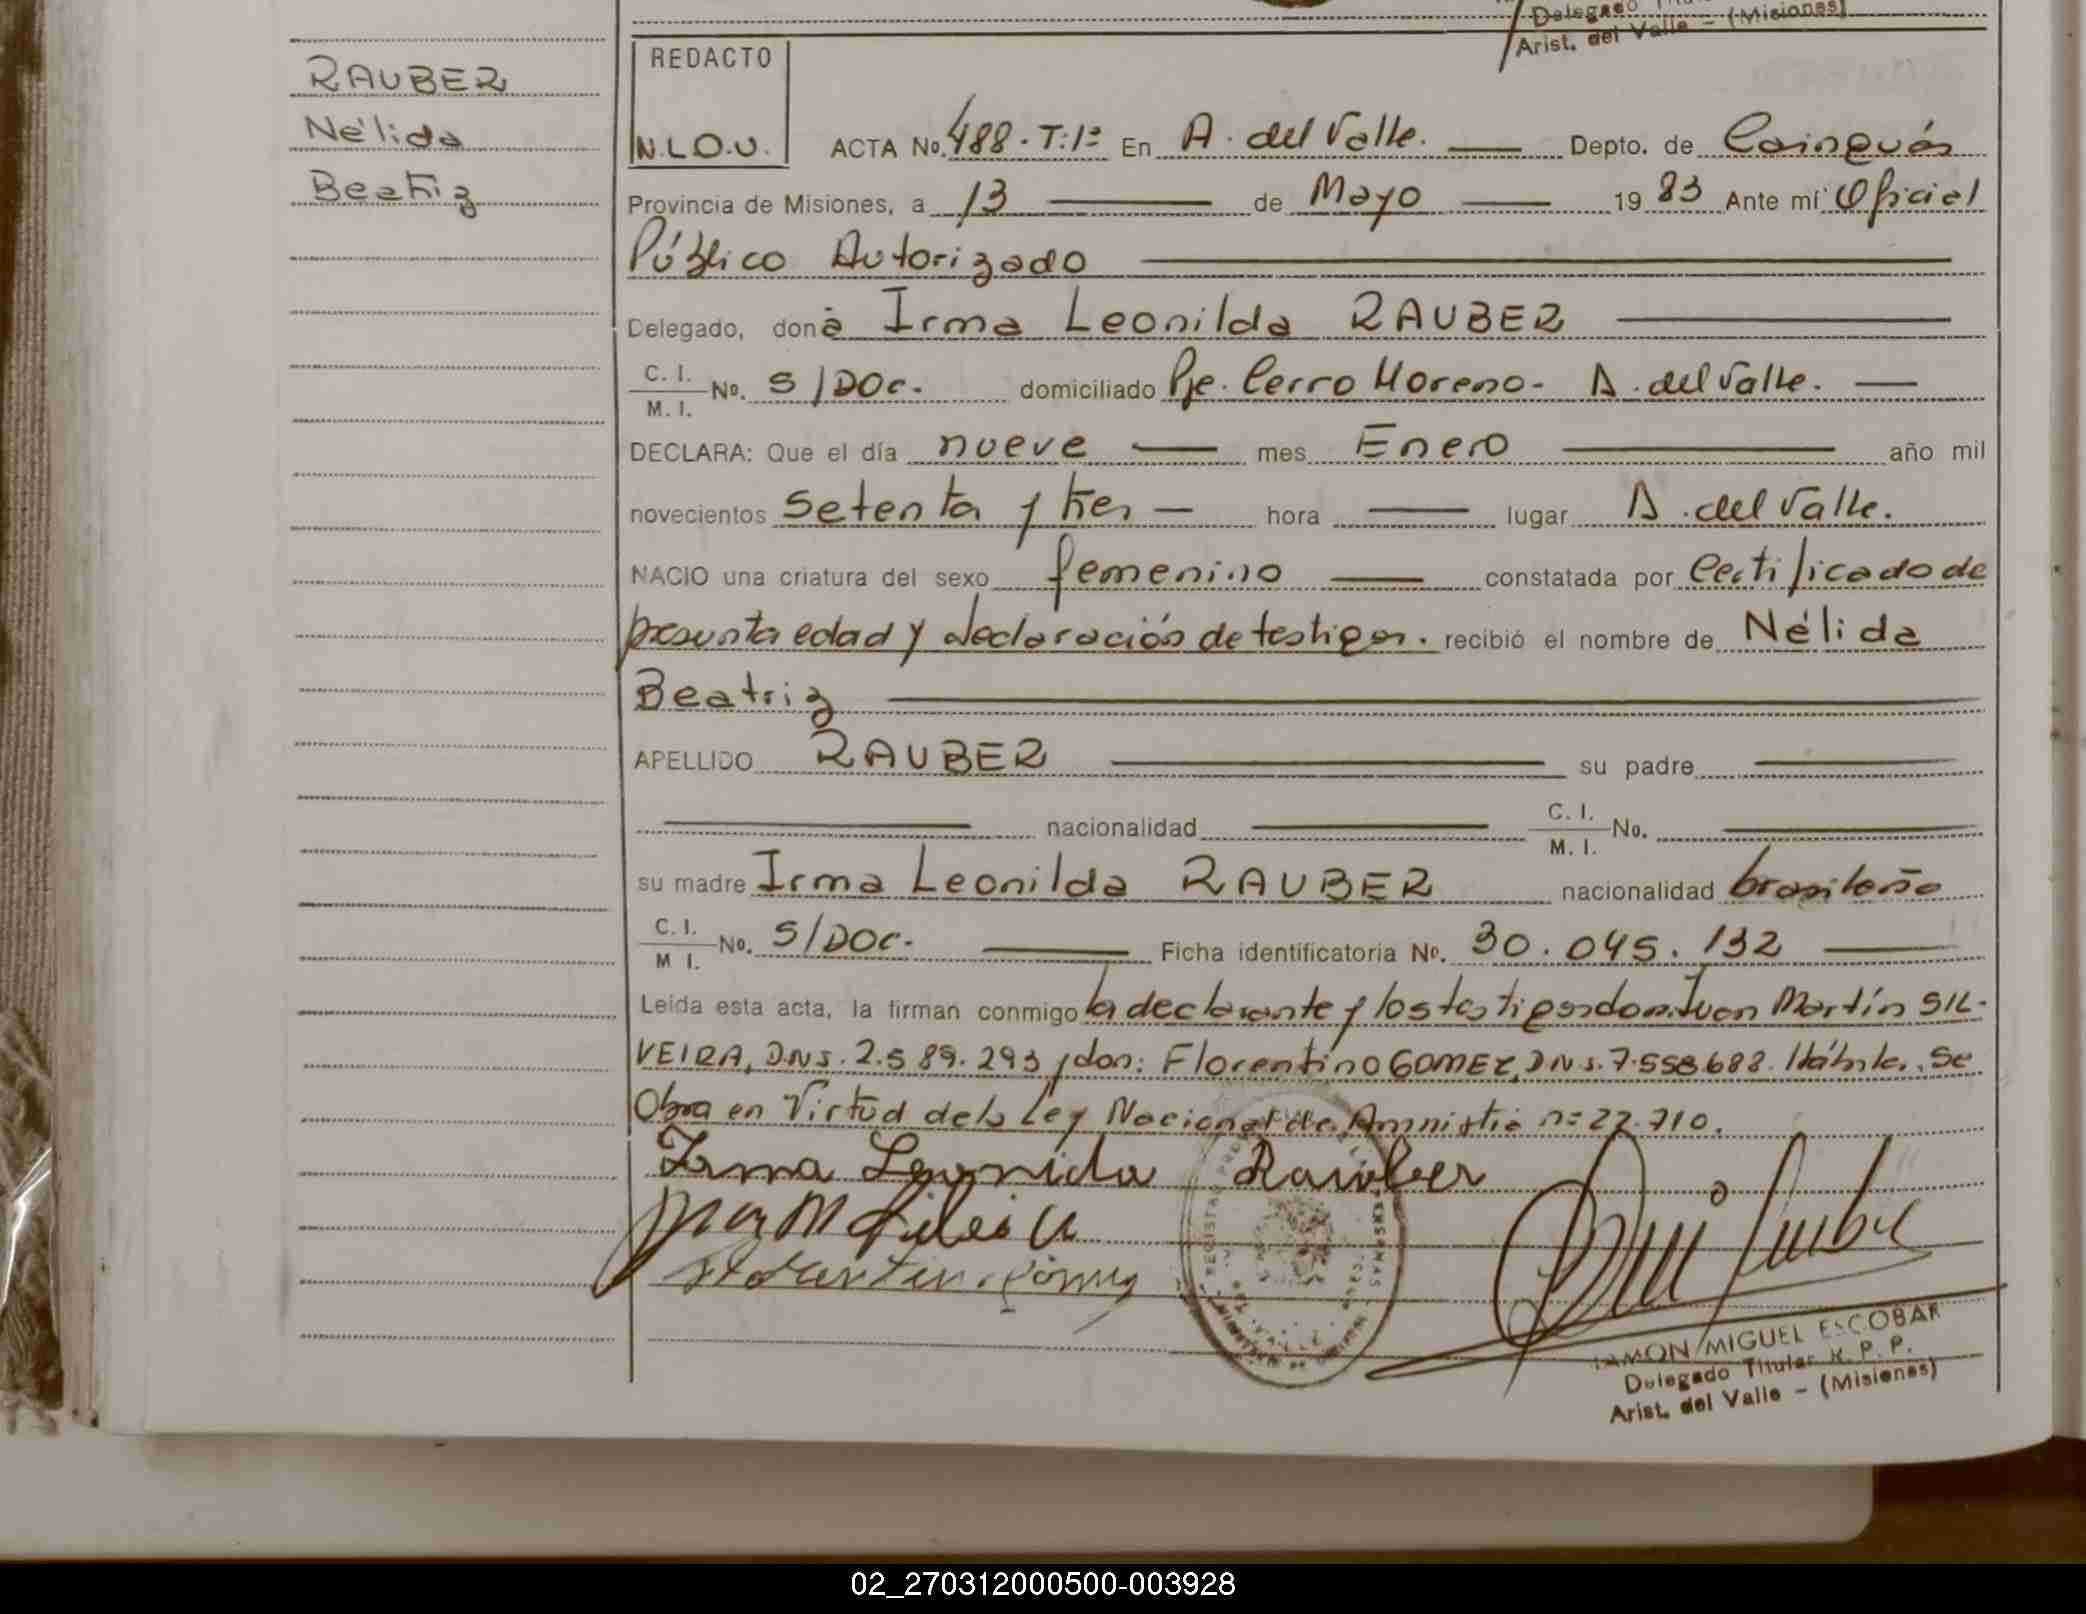 Delegado Titu
Arist. del Valle - (Misiones)
RAUBER
Nélida
Beatriz
REDACTO
N.L.O.U.
ACTA No. 488 - T:1º En A. del Valle. Depto. de Cainguás
Provincia de Misiones, a 13 de Mayo 19 83 Ante mí Oficial
Público Autorizado
Delegado, don a Irma Leonilda RAUBER
C. I.
M. I. No. S/DOC. domiciliado Pje. Cerro Moreno - A. del Valle.
DECLARA: Que el día nueve mes Enero año mil
novecientos setenta y tres hora lugar A. del Valle.
NACIO una criatura del sexo femenino constatada por Certificado de
presunta edad y declaración de testigos. recibió el nombre de Nélida
Beatriz
APELLIDO RAUBER su padre
nacionalidad C. I.
M. I. No.
su madre Irma Leonilda RAUBER nacionalidad brasileña
C. I.
M I. No. S/DOC. Ficha identificatoria No. 30.045.132
Leída esta acta, la firman conmigo la declarante y los testigos don: Juan Martín SIL-
VEIRA, D.N.I. 2.589.293 y don: Florentino GOMEZ, D.N.I. 7.558.688. Hábiles. Se
Obra en Virtud de la Ley Nacional de Amnistía nº 22.710.
Irma Leonida Rauber
RAMON MIGUEL ESCOBAR
Delegado Titular R. P. P.
Arist. del Valle - (Misiones)
02_270312000500-003928